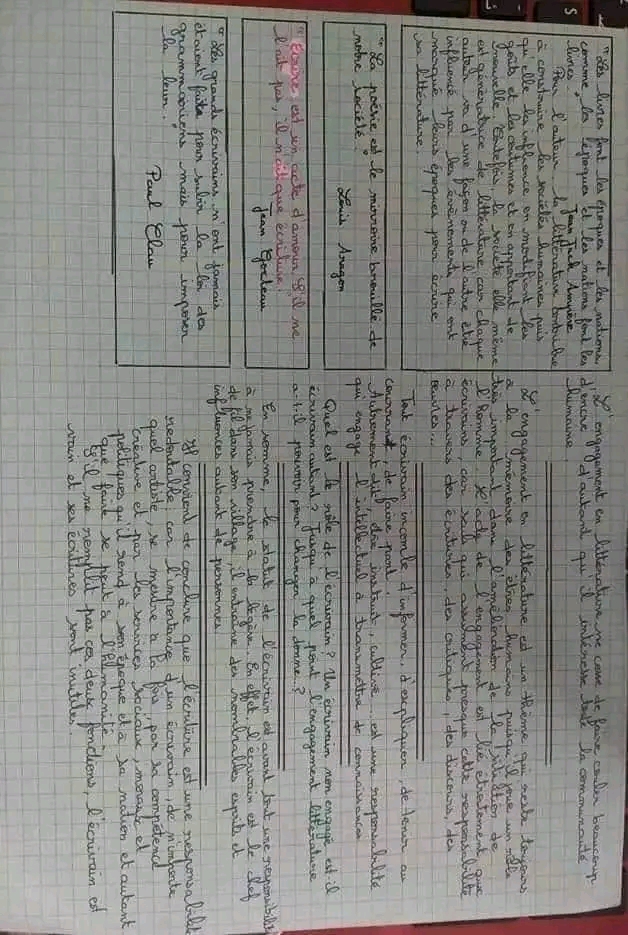 "Les livres font les époques et les nations,
comme les époques et les nations font les
livres."
Jean Jack Ampère
Pour l'auteur la littérature contribue
à construire les sociétés humaines puis
qu'elle les influence en modifiant les
goûts et les coutumes et en apportant de
nouvelle. Toutefois, la société elle même
est génératrice de littérature car chaque
auteur va d'une façon ou de l'autre être
influencé par les événements qui ont
marqué leurs époques pour écrire
sa littérature.
"La poésie est le mirroire brouillé de
notre société."
Louis Aragon
"Ecrire est un acte d'amour. S'il ne
l'ait pas, il n'ait que écriture."
Jean Cocteau
"Les grands écrivains n'ont jamais
étaient faits pour subir la loi des
grammairiens mais pour imposer
la leur.
Paul Clau
L'engagement en littérature ne cesse de faire couler beaucoup
d'encre d'autant qu'il intéresse toute la communauté
humaine
L'engagement en littérature est un thème qui reste toujours
à la mémoire des êtres humains puisqu'il joue un rôle
très important dans l'amélioration de la situation de
l'homme. L'acte de l'engagement est lié étroitement aux
écrivains, car seuls qui assument presque cette responsabilité
à travers des écritures, des critiques, des discours, des
œuvres...
Tout écrivain incombe d'informer, d'expliquer, de tenir au
courrant, de faire part...
Autrement dit, être instruit, cultivé... est une responsabilité
qui engage l'intellectuel à transmettre de connaissances
Quel est le rôle de l'écrivain? Un écrivain non engagé est-il
écrivain autant? Jusqu'à quel point l'engagement littérature
a-t-il pouvoir pour changer la donne..?
En somme, le statut de l'écrivain est avant tout une responsabilité
à ne jamais prendre à la légère. En effet, l'écrivain est le chef
de fil dans son village, il entraîne des nombrables esprits et
influences autant de personnes
Il convient de conclure que l'écriture est une responsabilité
redoutable; car l'importance d'un écrivain, de n'importe
quel artiste, se mesure à la fois, par sa compétence
créative et par les services sociaux, moraux et
politiques qu'il rend à son époque et à sa nation et autant
que faire se peut à l'humanité.
S'il ne remplit pas ces deux fonctions, l'écrivain est
vain et ses écritures sont inutiles.